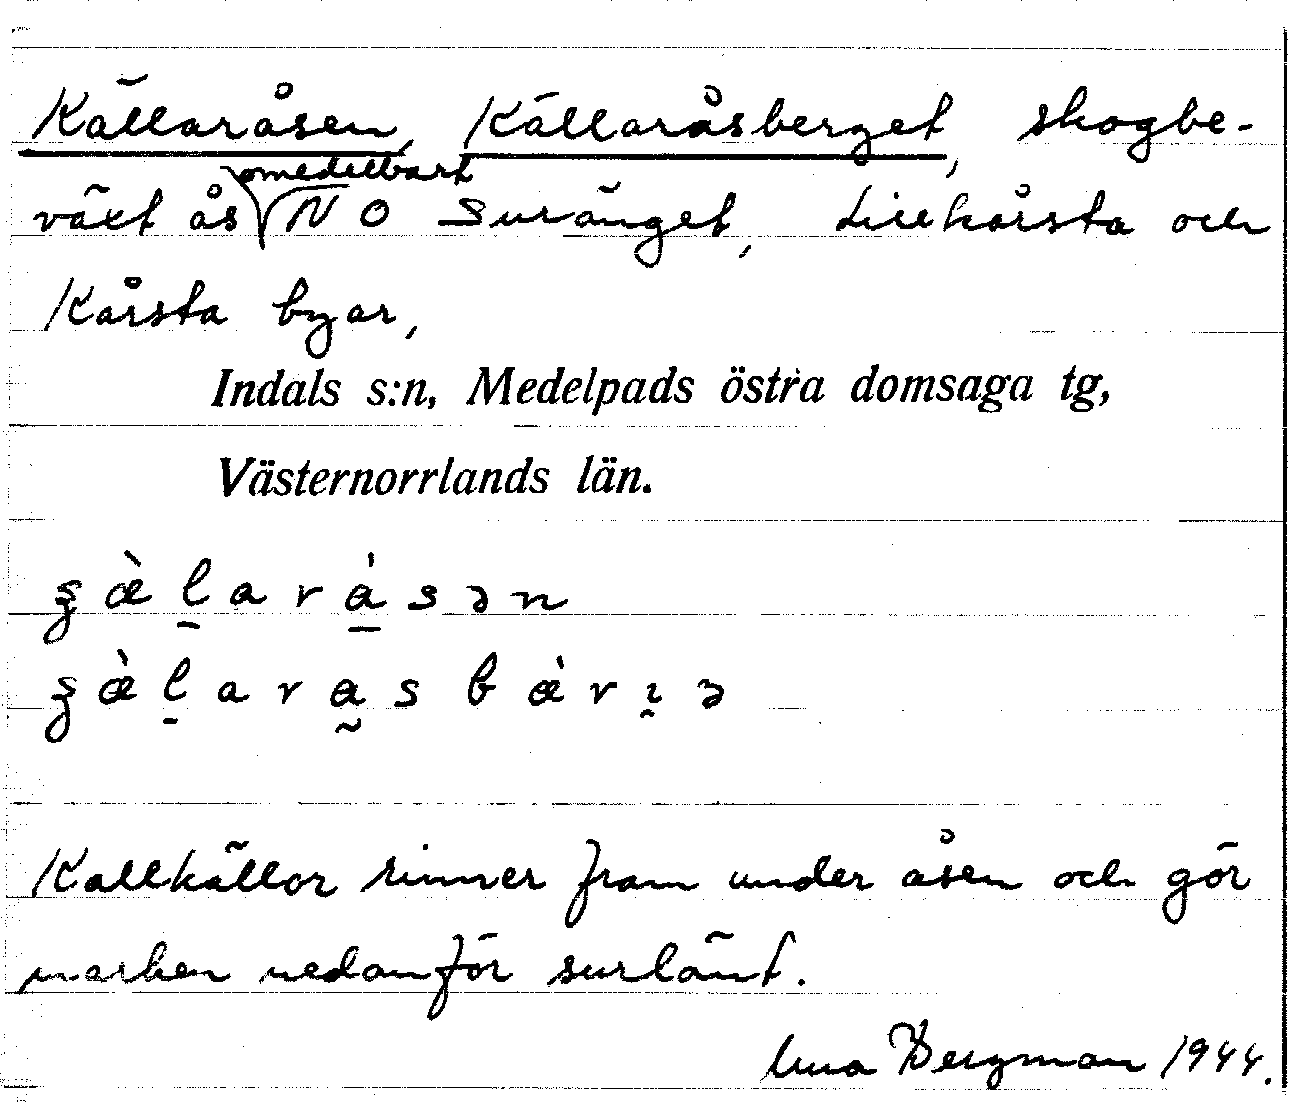 Källaråsen, Källaråsberget, skogbe-
växt ås omedelbart NO Suränget, Lillkårsta och
Kårsta byar,
Indals s:n, Medelpads östra domsaga tg,
Västernorrlands län.
Kallkällor rinner fram under åsen och gör
marken nedanför surlänt.
Bergman 1944.